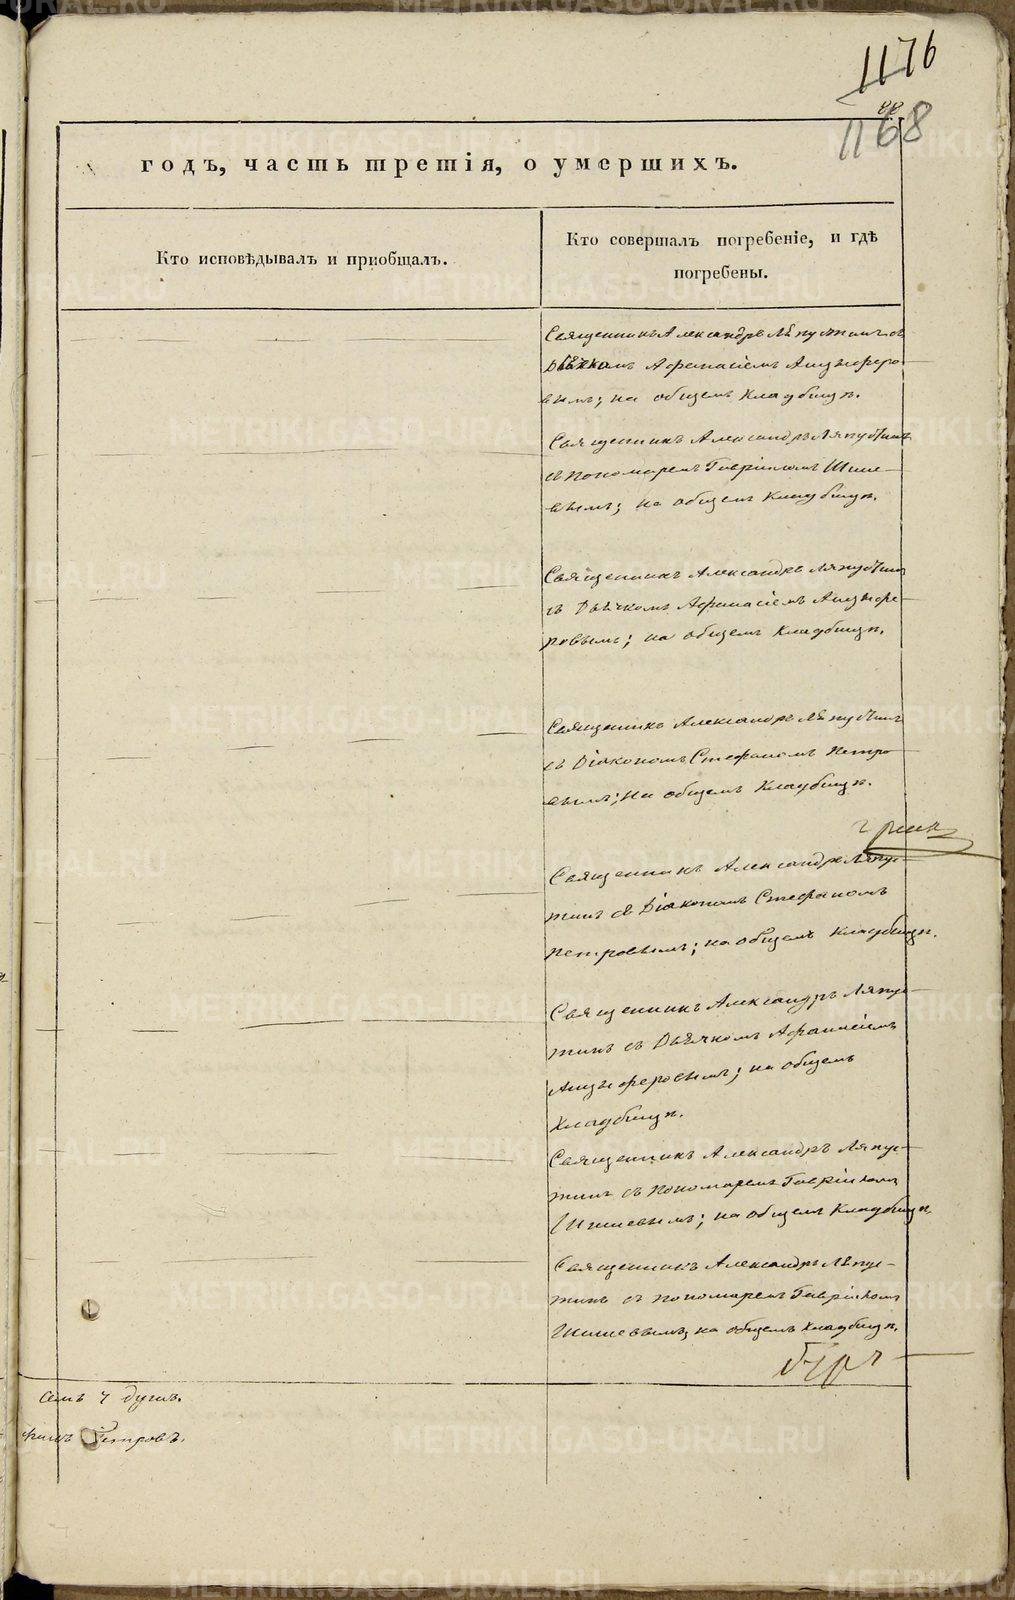 1176
1168
годъ, часть третія, о умершихъ.
Кто исповѣдывалъ и пріобщалъ.
Кто совершалъ погребеніе, и гдѣ
погребены.
Священникъ Александръ Ляпустинъ съ
Дьячкомъ Афанасіемъ Анцыферо-
вымъ; на общемъ кладбищѣ.
Священникъ Александръ Ляпустинъ
съ пономаремъ Гавріиломъ Шише-
вымъ; на общемъ кладбищѣ.
Священникъ Александръ Ляпустинъ
съ Дьячкомъ Афанасіемъ Анцыфе-
ровымъ; на общемъ кладбищѣ.
Священникъ Александръ Ляпустинъ
съ Діакономъ Стефаномъ Петро
вымъ; на общемъ кладбищѣ.
Священникъ Александръ Ляпус-
тинъ съ Діакономъ Стефаномъ
Петровымъ; на общемъ кладбищѣ.
Священникъ Александръ Ляпус-
тинъ съ Дьячкомъ Афанасіемъ
Анцыферовымъ; на общемъ
кладбищѣ.
Священникъ Александръ Ляпус-
тинъ съ пономаремъ Гавріиломъ
Шишевымъ; на общемъ кладбищѣ.
Священникъ Александръ Ляпус-
тинъ съ пономаремъ Гавріиломъ
Шишевымъ; на общемъ кладбищѣ.
семь 7 душъ.
Петровъ.
METRIKI.GASO-URAL.RU